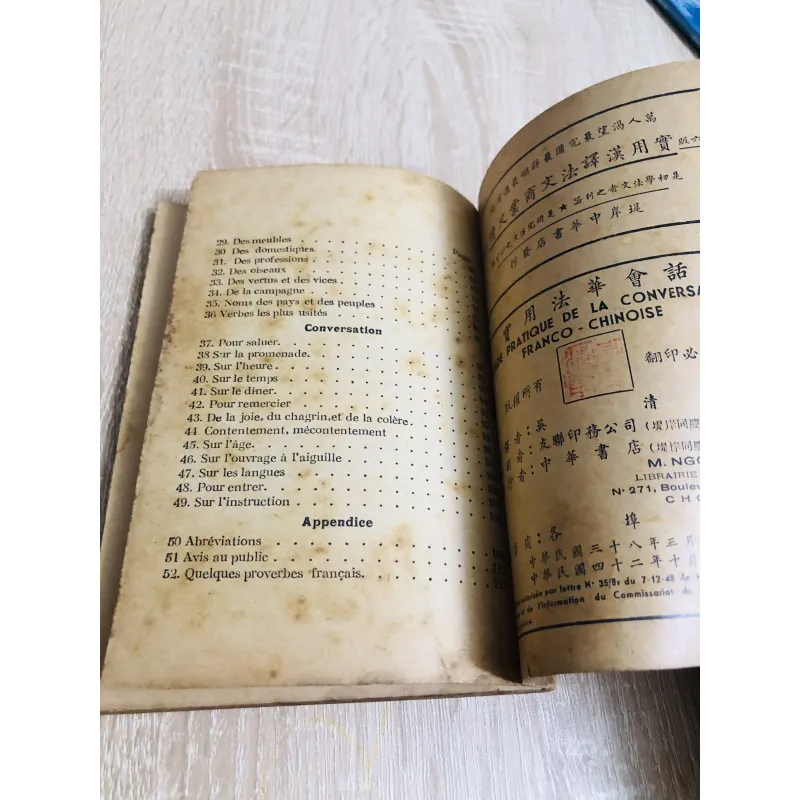 29. Des meubles
30 Des domestiques.
31. Des professions
32. Des oiseaux
33. Des vertus et des vices
34. De la campagne
35. Noms des pays et des peuples
36 Verbes les plus usités
Conversation
37. Pour saluer.
38 Sur la promenade.
39. Sur l'heure
40. Sur le temps
41. Sur le dîner
42. Pour remercier
43. De la joie, du chagrin, et de la colère
44 Contentement, mécontentement
45. Sur l'âge.
46. Sur l'ouvrage à l'aiguille
47. Sur les langues
48. Pour entrer.
49. Sur l'instruction
Appendice
50 Abréviations
51 Avis au public
52. Quelques proverbes français.
萬人渴望最完備最
實用漢譯法文商業
是初學法文者之利器★
堤岸中華書店發行
實用法華會話
PRATIQUE DE LA CONVERSA
FRANCO - CHINOISE
翻印必
版權所有
者：吳 清
者：友聯印務公司（堤岸同慶
行者：中華書店（堤岸同慶
M. NGO
LIBRAIRIE
N° 271, Boulev
CHO
各埠
中華民國三十八年三月
中華民國四十二年十月
par lettre N° 35/Br du 7-12-48 de
et de l'Information du Commissariat de